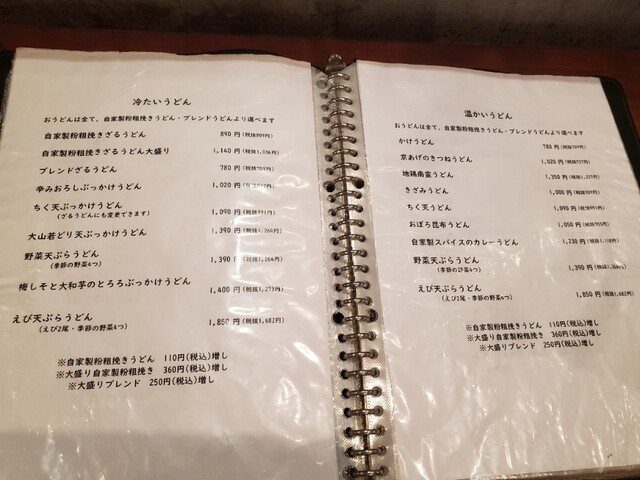 冷たいうどん
おうどんは全て、自家製粉粗挽きうどん・ブレンドうどんより選べます
自家製粉粗挽きざるうどん 890 円(税抜809円)
自家製粉粗挽きざるうどん大盛り 1,140 円(税抜1,036円)
ブレンドざるうどん 780 円(税抜709円)
辛みおろしぶっかけうどん 1,020 円
ちく天ぶっかけうどん 1,090 円(税抜991円)
(ざるうどんにも変更できます)
大山若どり天ぶっかけうどん 1,390 円(税抜1,264円)
野菜天ぷらうどん 1,390 円(税抜1,264円)
(季節の野菜4つ)
梅しそと大和芋のとろろぶっかけうどん 1,400 円(税抜1,273円)
えび天ぷらうどん 1,850 円(税抜1,682円)
(えび2尾・季節の野菜4つ)
※自家製粉粗挽きうどん 110円(税込)増し
※大盛り自家製粉粗挽き 360円(税込)増し
※大盛りブレンド 250円(税込)増し
温かいうどん
おうどんは全て、自家製粉粗挽きうどん・ブレンドうどんより選べます
かけうどん 780 円(税抜709円)
京あげのきつねうどん 1,020 円(税抜927円)
地鶏南蛮うどん 1,350 円(税抜1,227円)
きざみうどん 1,000 円(税抜909円)
ちく天うどん 1,090 円(税抜991円)
おぼろ昆布うどん 1,050 円(税抜955円)
自家製スパイスのカレーうどん 1,230 円(税抜1,118円)
野菜天ぷらうどん 1,390 円(税抜1,264円)
(季節の野菜4つ)
えび天ぷらうどん 1,850 円(税抜1,682円)
(えび2尾・季節の野菜4つ)
※自家製粉粗挽きうどん 110円(税込)増し
※大盛り自家製粉粗挽き 360円(税込)増し
※大盛りブレンド 250円(税込)増し